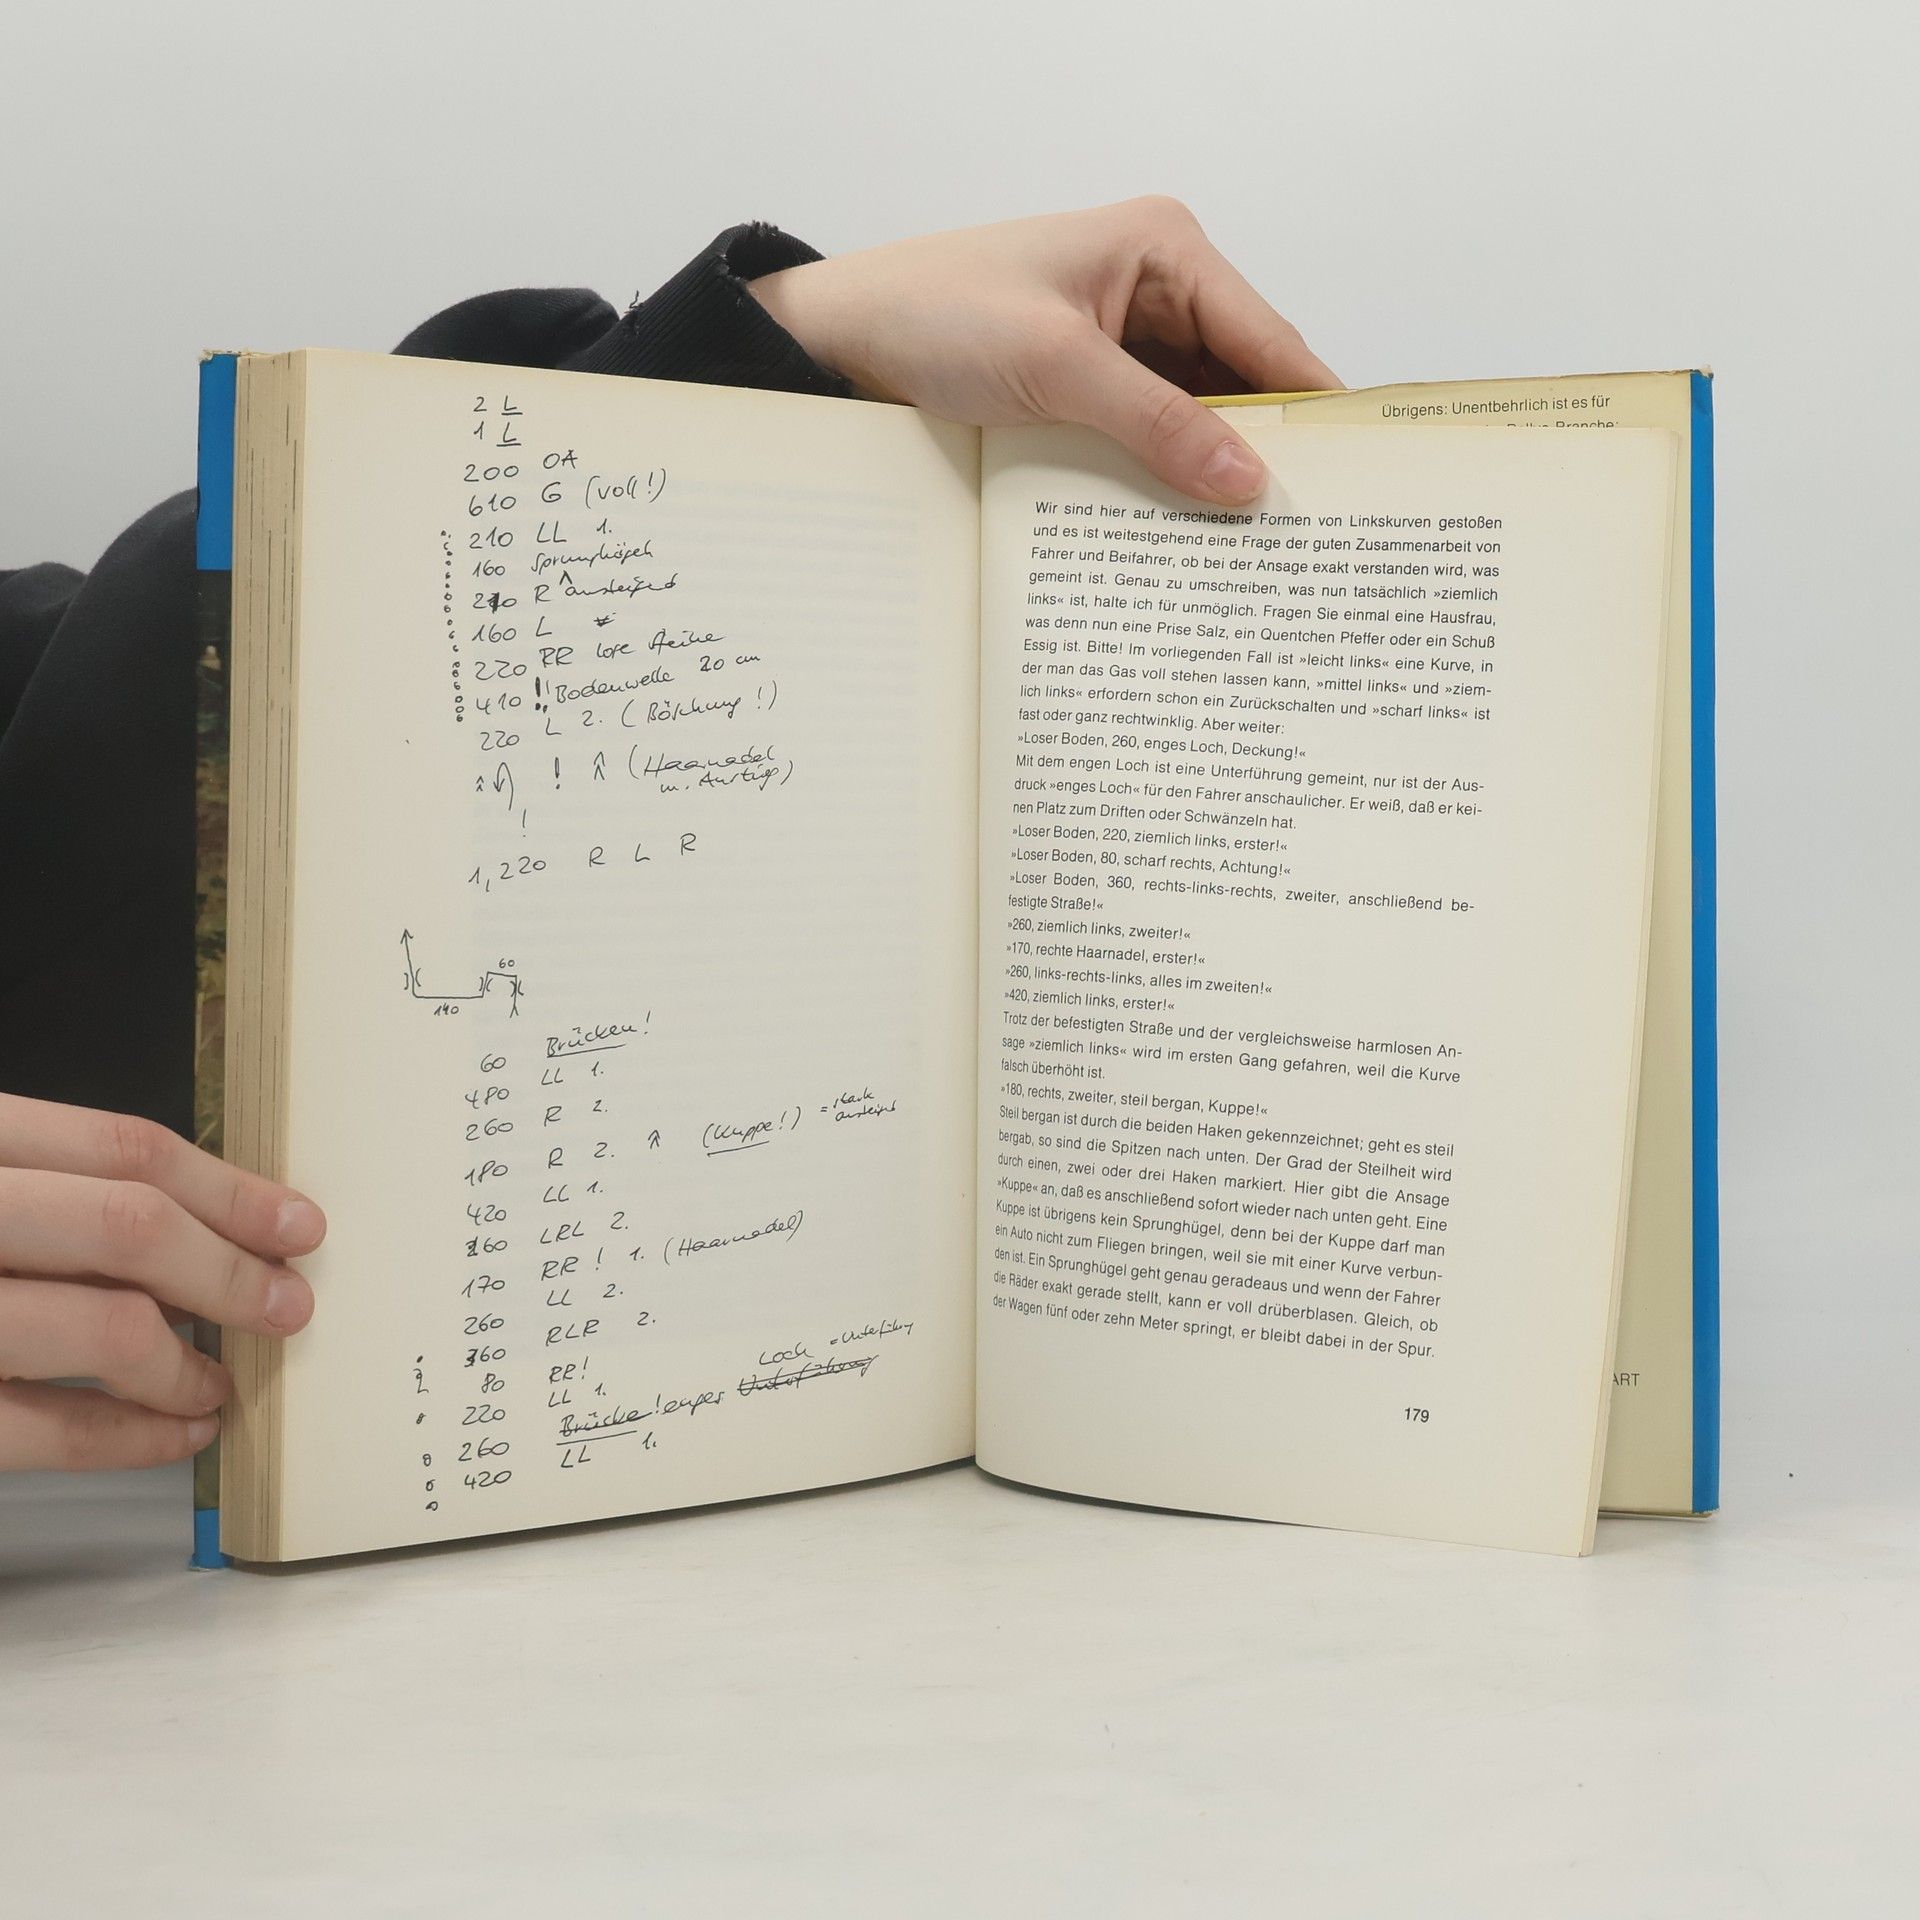 2 L
1 L
200 OA
610 G (voll!)
210 LL 1.
160 Sprunghügel
210 R ansteigend
160 L
220 RR lose Steine
410 !! Bodenwelle 20 cm
220 L 2. (Böschung!)
! (Haarnadel
m. Anstieg)
!
1,220 R L R
60
140
Brücken!
60 LL 1.
480 R 2.
260 R 2. (Kuppe!) = stark
ansteigend
180 LL 1.
420 LRL 2.
260 RR! 1. (Haarnadel)
170 LL 2.
260 RLR 2.
360 RR!
80 LL 1.
Loch = Unterführung
220 Brücke! enges Unterführung
260 LL 1.
420
Übrigens: Unentbehrlich ist es für
Wir sind hier auf verschiedene Formen von Linkskurven gestoßen
und es ist weitestgehend eine Frage der guten Zusammenarbeit von
Fahrer und Beifahrer, ob bei der Ansage exakt verstanden wird, was
gemeint ist. Genau zu umschreiben, was nun tatsächlich »ziemlich
links« ist, halte ich für unmöglich. Fragen Sie einmal eine Hausfrau,
was denn nun eine Prise Salz, ein Quentchen Pfeffer oder ein Schuß
Essig ist. Bitte! Im vorliegenden Fall ist »leicht links« eine Kurve, in
der man das Gas voll stehen lassen kann, »mittel links« und »ziem-
lich links« erfordern schon ein Zurückschalten und »scharf links« ist
fast oder ganz rechtwinklig. Aber weiter:
»Loser Boden, 260, enges Loch, Deckung!«
Mit dem engen Loch ist eine Unterführung gemeint, nur ist der Aus-
druck »enges Loch« für den Fahrer anschaulicher. Er weiß, daß er kei-
nen Platz zum Driften oder Schwänzeln hat.
»Loser Boden, 220, ziemlich links, erster!«
»Loser Boden, 80, scharf rechts, Achtung!«
»Loser Boden, 360, rechts-links-rechts, zweiter, anschließend be-
festigte Straße!«
»260, ziemlich links, zweiter!«
»170, rechte Haarnadel, erster!«
»260, links-rechts-links, alles im zweiten!«
»420, ziemlich links, erster!«
Trotz der befestigten Straße und der vergleichsweise harmlosen An-
sage »ziemlich links« wird im ersten Gang gefahren, weil die Kurve
falsch überhöht ist.
»180, rechts, zweiter, steil bergan, Kuppe!«
Steil bergan ist durch die beiden Haken gekennzeichnet; geht es steil
bergab, so sind die Spitzen nach unten. Der Grad der Steilheit wird
durch einen, zwei oder drei Haken markiert. Hier gibt die Ansage
»Kuppe« an, daß es anschließend sofort wieder nach unten geht. Eine
Kuppe ist übrigens kein Sprunghügel, denn bei der Kuppe darf man
ein Auto nicht zum Fliegen bringen, weil sie mit einer Kurve verbun-
den ist. Ein Sprunghügel geht genau geradeaus und wenn der Fahrer
die Räder exakt gerade stellt, kann er voll drüberblasen. Gleich, ob
der Wagen fünf oder zehn Meter springt, er bleibt dabei in der Spur.
ART
179